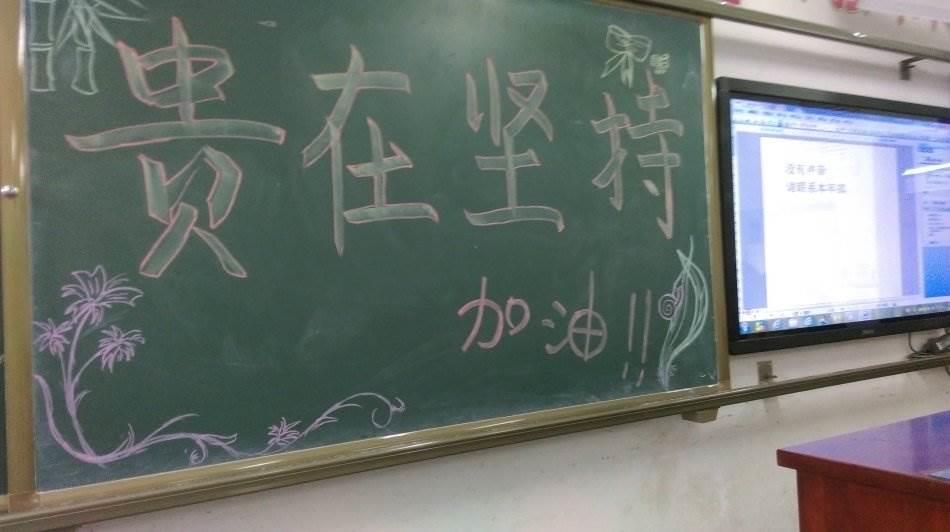 贵在坚持
加油!!
没有声音
请联系本年级